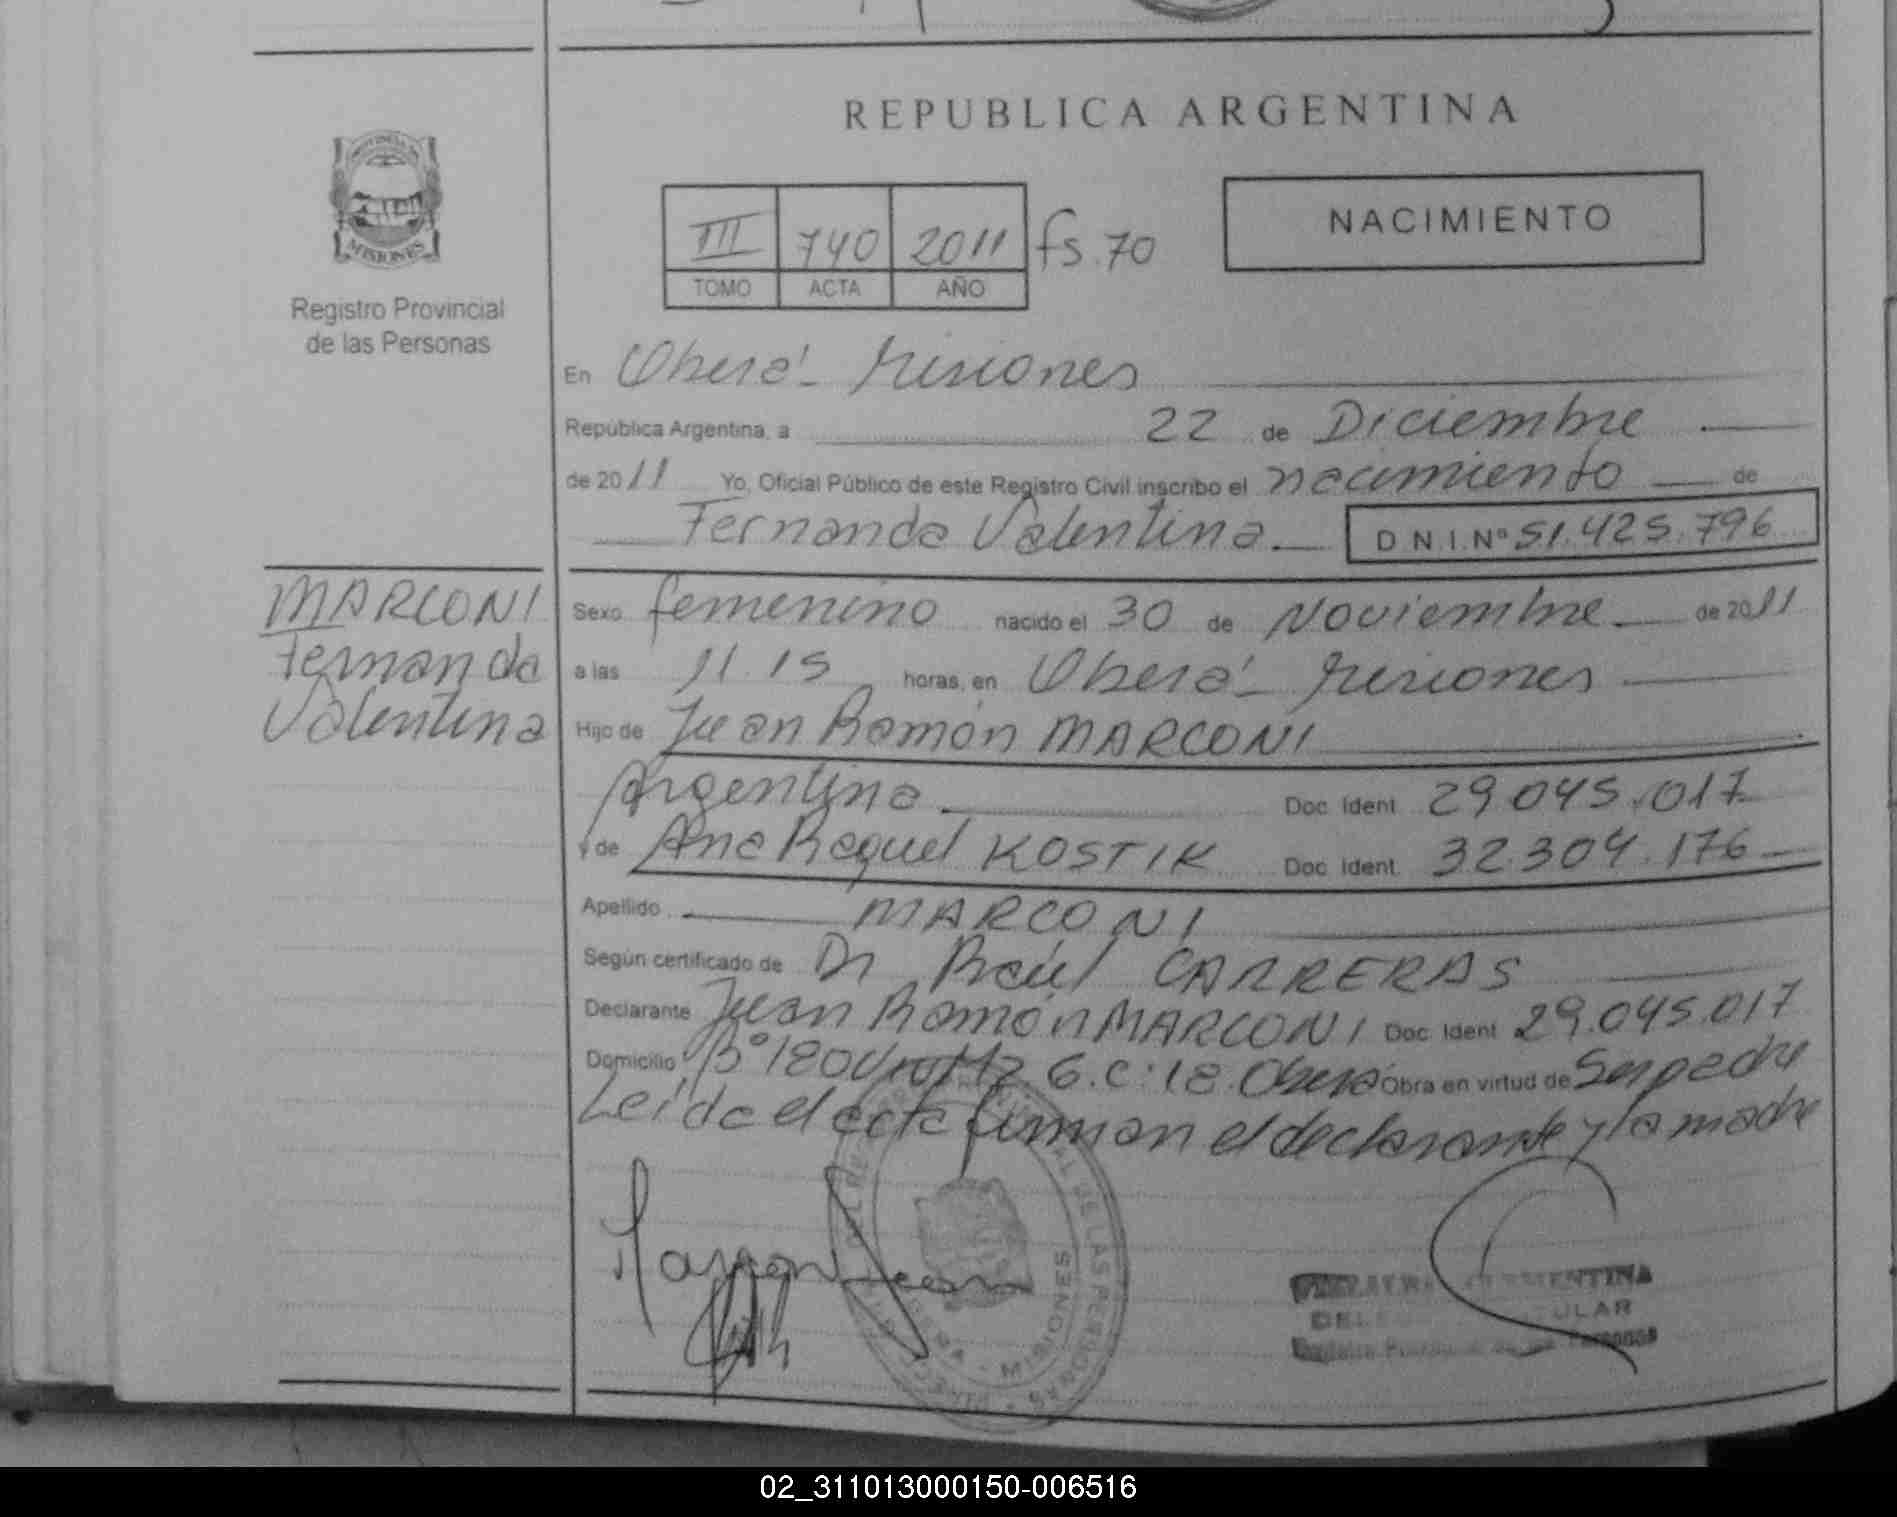 REPUBLICA ARGENTINA
NACIMIENTO
III 740 2011 fs. 70
TOMO ACTA AÑO
MISIONES
Registro Provincial
de las Personas
En Oberá - Misiones
República Argentina, a 22 de Diciembre
de 2011 Yo, Oficial Público de este Registro Civil inscribo el nacimiento de
Fernanda Valentina D.N.I.Nº 51.425.796
MARCONI
Fernanda
Valentina
Sexo femenino nacido el 30 de Noviembre de 2011
a las 11.15 horas, en Oberá - Misiones
Hijo de Juan Ramón MARCONI
Argentina Doc. Ident. 29.045.017
y de Ana Raquel KOSTIK Doc. Ident. 32.304.176
Apellido MARCONI
Según certificado de Dr Raúl CARRERAS
Declarante Juan Ramón MARCONI Doc. Ident. 29.045.017
Domicilio Bº 180 Viv Mz 6. C: 18. Oberá Obra en virtud de Ser padre
Leída el acta firman el declarante y la madre
DE LAS PERSONAS
MISIONES
02_311013000150-006516